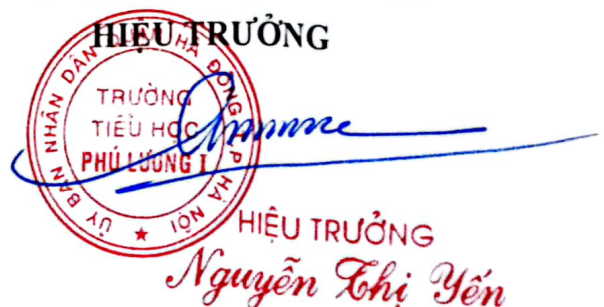 HIỆU TRƯỞNG
ỦY BAN NHÂN DÂN QUẬN HÀ ĐÔNG T.P HÀ NỘI
TRƯỜNG
TIỂU HỌC
PHÚ LƯƠNG I
HIỆU TRƯỞNG
Nguyễn Thị Yến